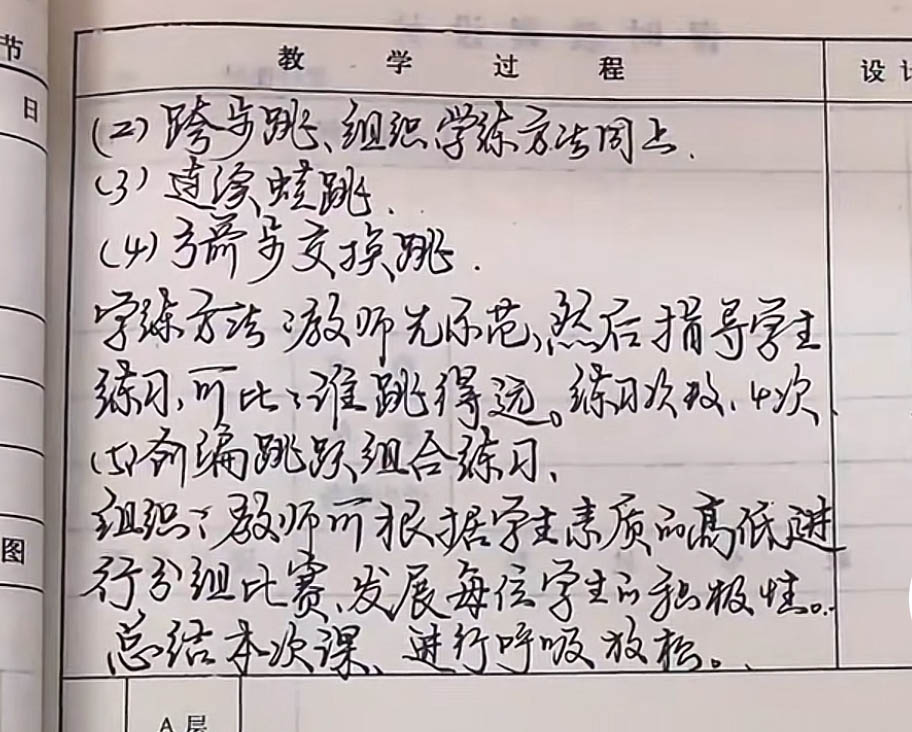 节
教 学 过 程
设 计
日
(2) 跨步跳、组织学练方法同上.
(3) 连续蛙跳.
(4) 弓箭步交换跳.
学练方法:教师先示范,然后指导学生
练习,可比:谁跳得远。练习次数、4次.
(5) 创编跳跃组合练习.
组织:教师可根据学生素质的高低进
行分组比赛、发展每位学生的积极性。
总结本次课、进行呼吸放松。
图
A 层